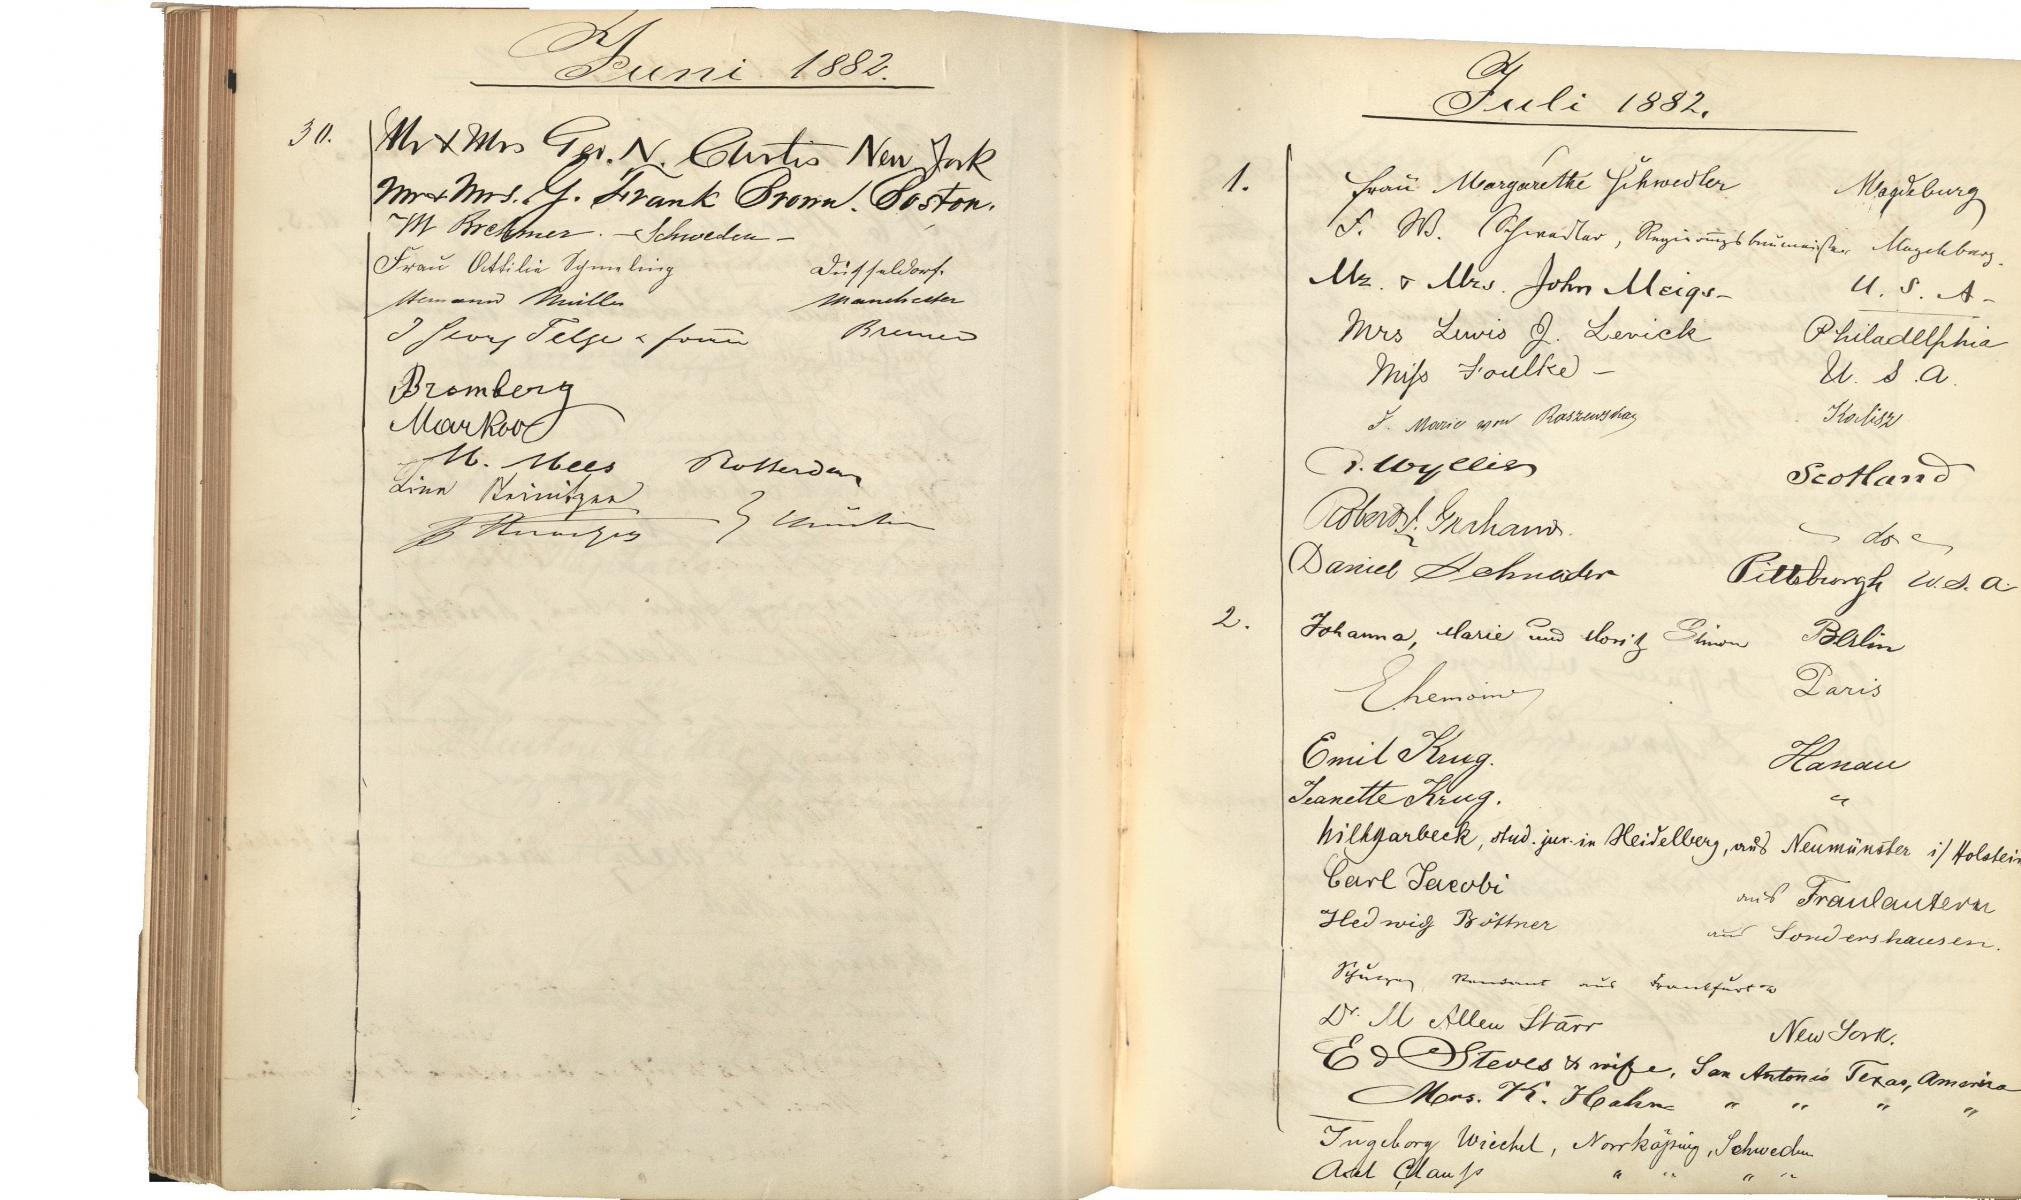 Juni 1882.
30.
Mr & Mrs Geo. N. Curtis New York
Mr & Mrs. J. Frank Brown. Boston.
M Brehmer. – Schweden –
Frau Ottilie Schmeling Düsseldorf.
Hermann Müller Manchester
J Georg Telge & Bremen
Bromberg
Markoo
M. Mees Rotterdam
Lina
Juli 1882.
1.
Frau Margarethe Schwedler Magdeburg
F. W. Schwedler, Regierungsbaumeister Magdeburg.
Mr. & Mrs. John Meigs – U. S. A –
Mrs Lewis J. Levick Philadelphia
Miss Foulke – U. S. A.
F. Marie von Kalisz
Wyllie Scotland
Robert do
Daniel Schneider Pittsburgh U.S.A.
2.
Johanna, Marie und Moritz Simon Berlin
Paris
Emil Krug. Hanau
Jeanette Krug. "
stud. jur. in Heidelberg, aus Neumünster i/ Holstein
Carl Jacobi aus Fraulautern
Hedwig Böttner aus Sondershausen.
aus Frankfurt
Dr. M Allen Starr New York.
Ed Steves & wife, San Antonio Texas, America
Mrs. K. Hahn " " " "
Ingeborg Wiechel, Norrköping, Schweden
Axel Clauss " " " "